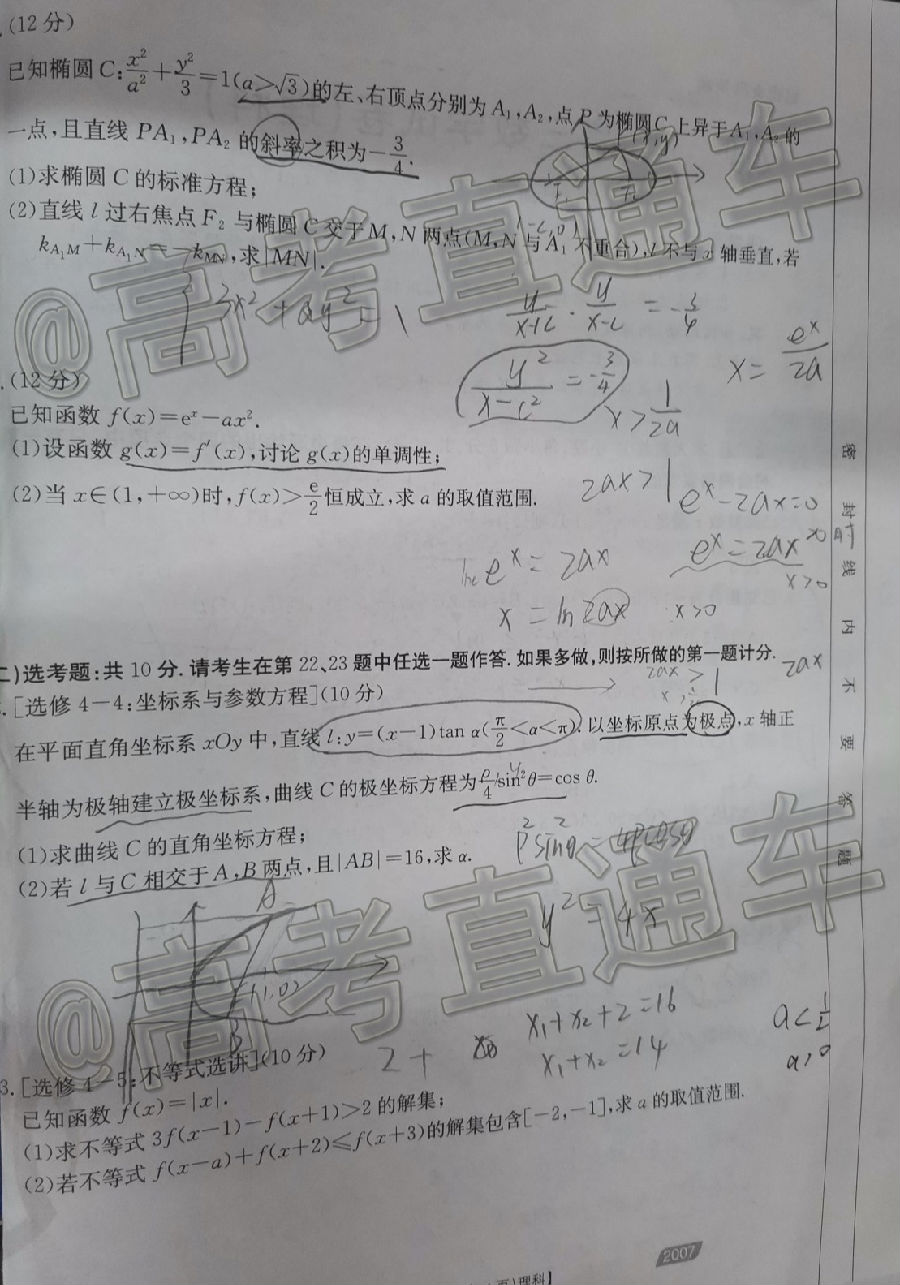 (12分)
已知椭圆C:x²/a²+y²/3=1(a>√3)的左、右顶点分别为A₁,A₂,点P为椭圆C上异于A₁,A₂的
一点,且直线PA₁,PA₂的斜率之积为-3/4.
(x,y)
(1)求椭圆C的标准方程;
(2)直线l过右焦点F₂与椭圆C交于M,N两点(M,N与A₁不重合),l不与x轴垂直,若
k_{A₁M}+k_{A₁N}=-k_{MN},求|MN|.
3x²+ay²=1
y/(x+c)·y/(x-c)=-3/4
x=eˣ/2a
y²/(x-c²)=-3/4
x>1/2a
.(12分)
已知函数f(x)=eˣ-ax².
(1)设函数g(x)=f′(x),讨论g(x)的单调性;
(2)当x∈(1,+∞)时,f(x)>e/2恒成立,求a的取值范围.
2ax>1
eˣ-2ax=0
eˣ=2ax
x>0
eˣ=2ax
x=ln2ax
x>0
二)选考题:共10分.请考生在第22、23题中任选一题作答.如果多做,则按所做的第一题计分.
2ax>1
2ax
.[选修4-4:坐标系与参数方程](10分)
在平面直角坐标系xOy中,直线l:y=(x-1)tan α(π/2<α<π).以坐标原点为极点,x轴正
半轴为极轴建立极坐标系,曲线C的极坐标方程为ρ/4 sin²θ=cos θ.
(1)求曲线C的直角坐标方程;
(2)若l与C相交于A,B两点,且|AB|=16,求α.
ρ²sin²θ=4ρcosθ
y²=4x
A
(1,0)
B
x₁+x₂+2=16
x₁+x₂=14
2+
a<1/2
a>0
3.[选修4-5:不等式选讲](10分)
已知函数f(x)=|x|.
(1)求不等式3f(x-1)-f(x+1)>2的解集;
(2)若不等式f(x-a)+f(x+2)≤f(x+3)的解集包含[-2,-1],求a的取值范围.
密封线内不要答题
2007
页)理科】
@高考直通车
@高考直通车